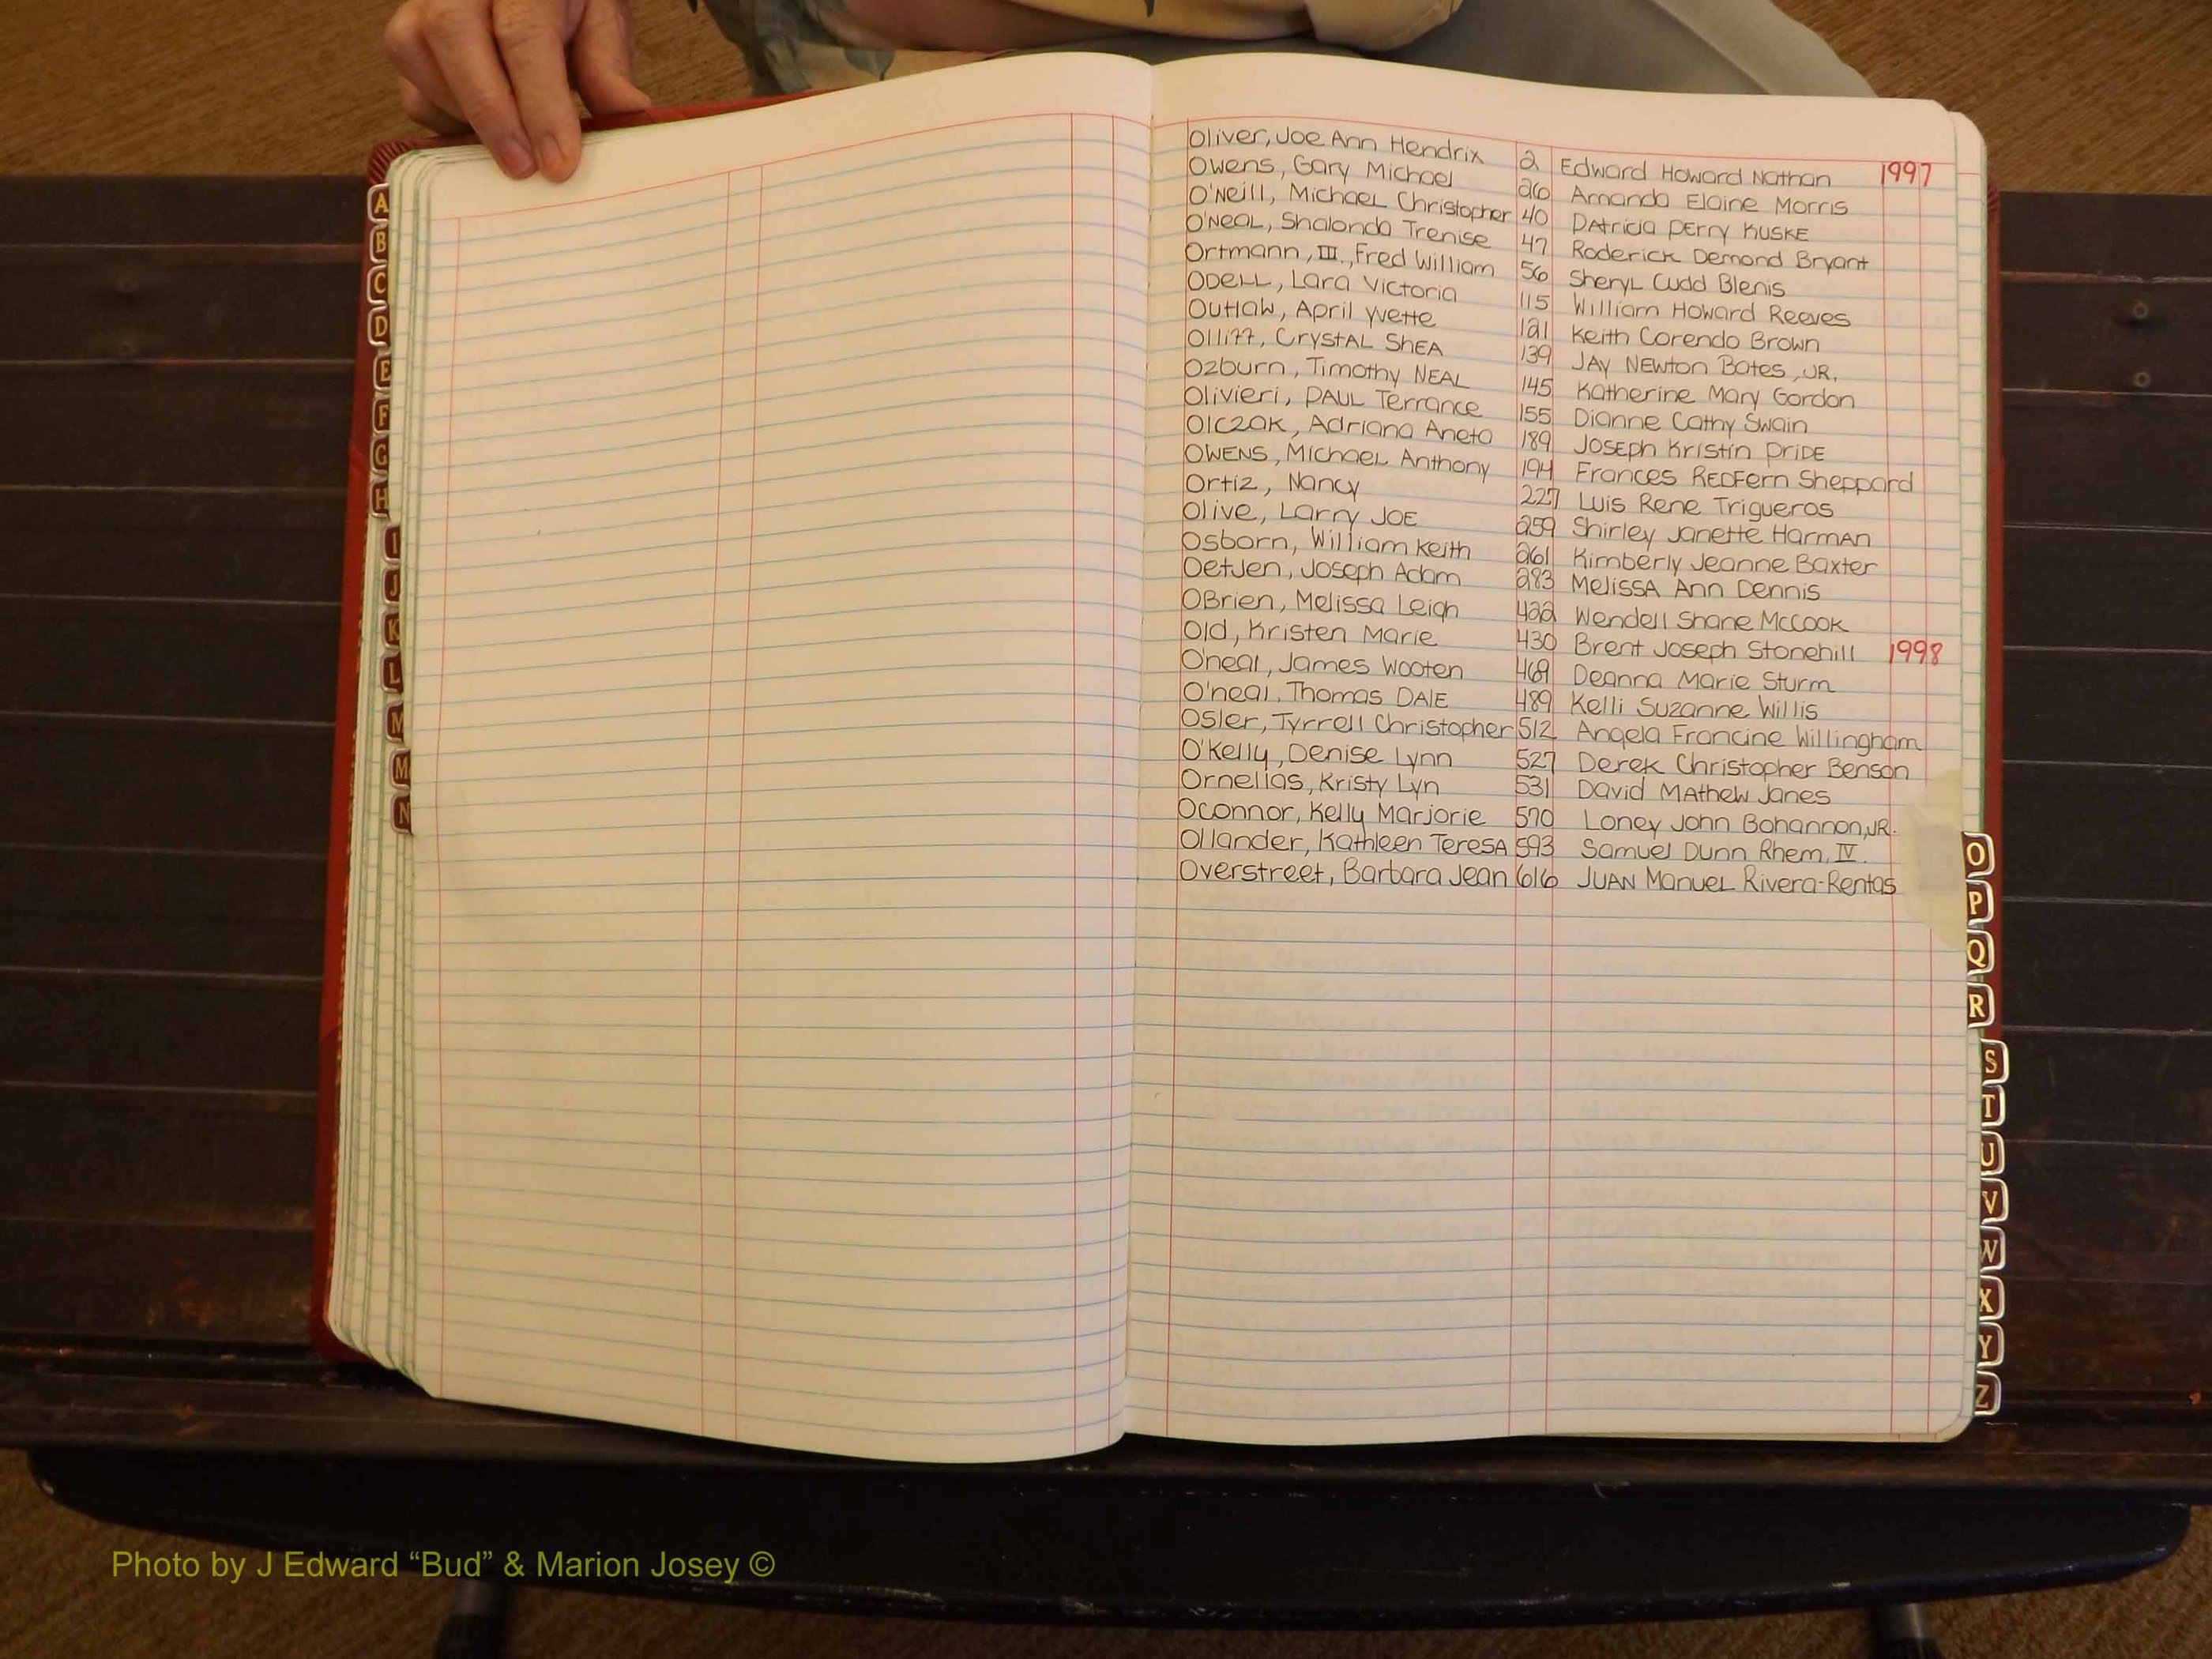 Oliver, Joe Ann Hendrix 2 Edward Howard Nathan 1997
Owens, Gary Michael 26 Amanda Elaine Morris
O'Neill, Michael Christopher 40 Patricia Perry Kuske
O'Neal, Shalonda Trenise 47 Roderick Demond Bryant
Ortmann, III., Fred William 56 Sheryl Cudd Blenis
Odell, Lara Victoria 115 William Howard Reeves
Outlaw, April Yvette 121 Keith Corendo Brown
Olliff, Crystal Shea 139 Jay Newton Bates, Jr.
Ozburn, Timothy Neal 145 Katherine Mary Gordon
Olivieri, Paul Terrance 155 Dianne Cathy Swain
Olczak, Adriana Aneta 189 Joseph Kristin Pride
Owens, Michael Anthony 194 Frances Redfern Sheppard
Ortiz, Nancy 227 Luis Rene Trigueros
Olive, Larry Joe 259 Shirley Janette Harman
Osborn, William Keith 261 Kimberly Jeanne Baxter
Oetjen, Joseph Adam 283 Melissa Ann Dennis
OBrien, Melissa Leigh 422 Wendell Shane McCook
Old, Kristen Marie 430 Brent Joseph Stonehill 1998
O'neal, James Wooten 469 Deanna Marie Sturm
O'neal, Thomas Dale 489 Kelli Suzanne Willis
Osler, Tyrrell Christopher 512 Angela Francine Willingham
O'Kelly, Denise Lynn 527 Derek Christopher Benson
Ornellas, Kristy Lyn 531 David Mathew Janes
Oconnor, Kelly Marjorie 570 Loney John Bohannon, Jr.
Ollander, Kathleen Teresa 593 Samuel Dunn Rhem, IV.
Overstreet, Barbara Jean 616 Juan Manuel Rivera-Rentas
A
B
C
D
E
F
G
H
I
J
K
L
M
M
N
O
P
Q
R
S
T
U
V
W
X
Y
Z
Photo by J Edward “Bud” & Marion Josey ©